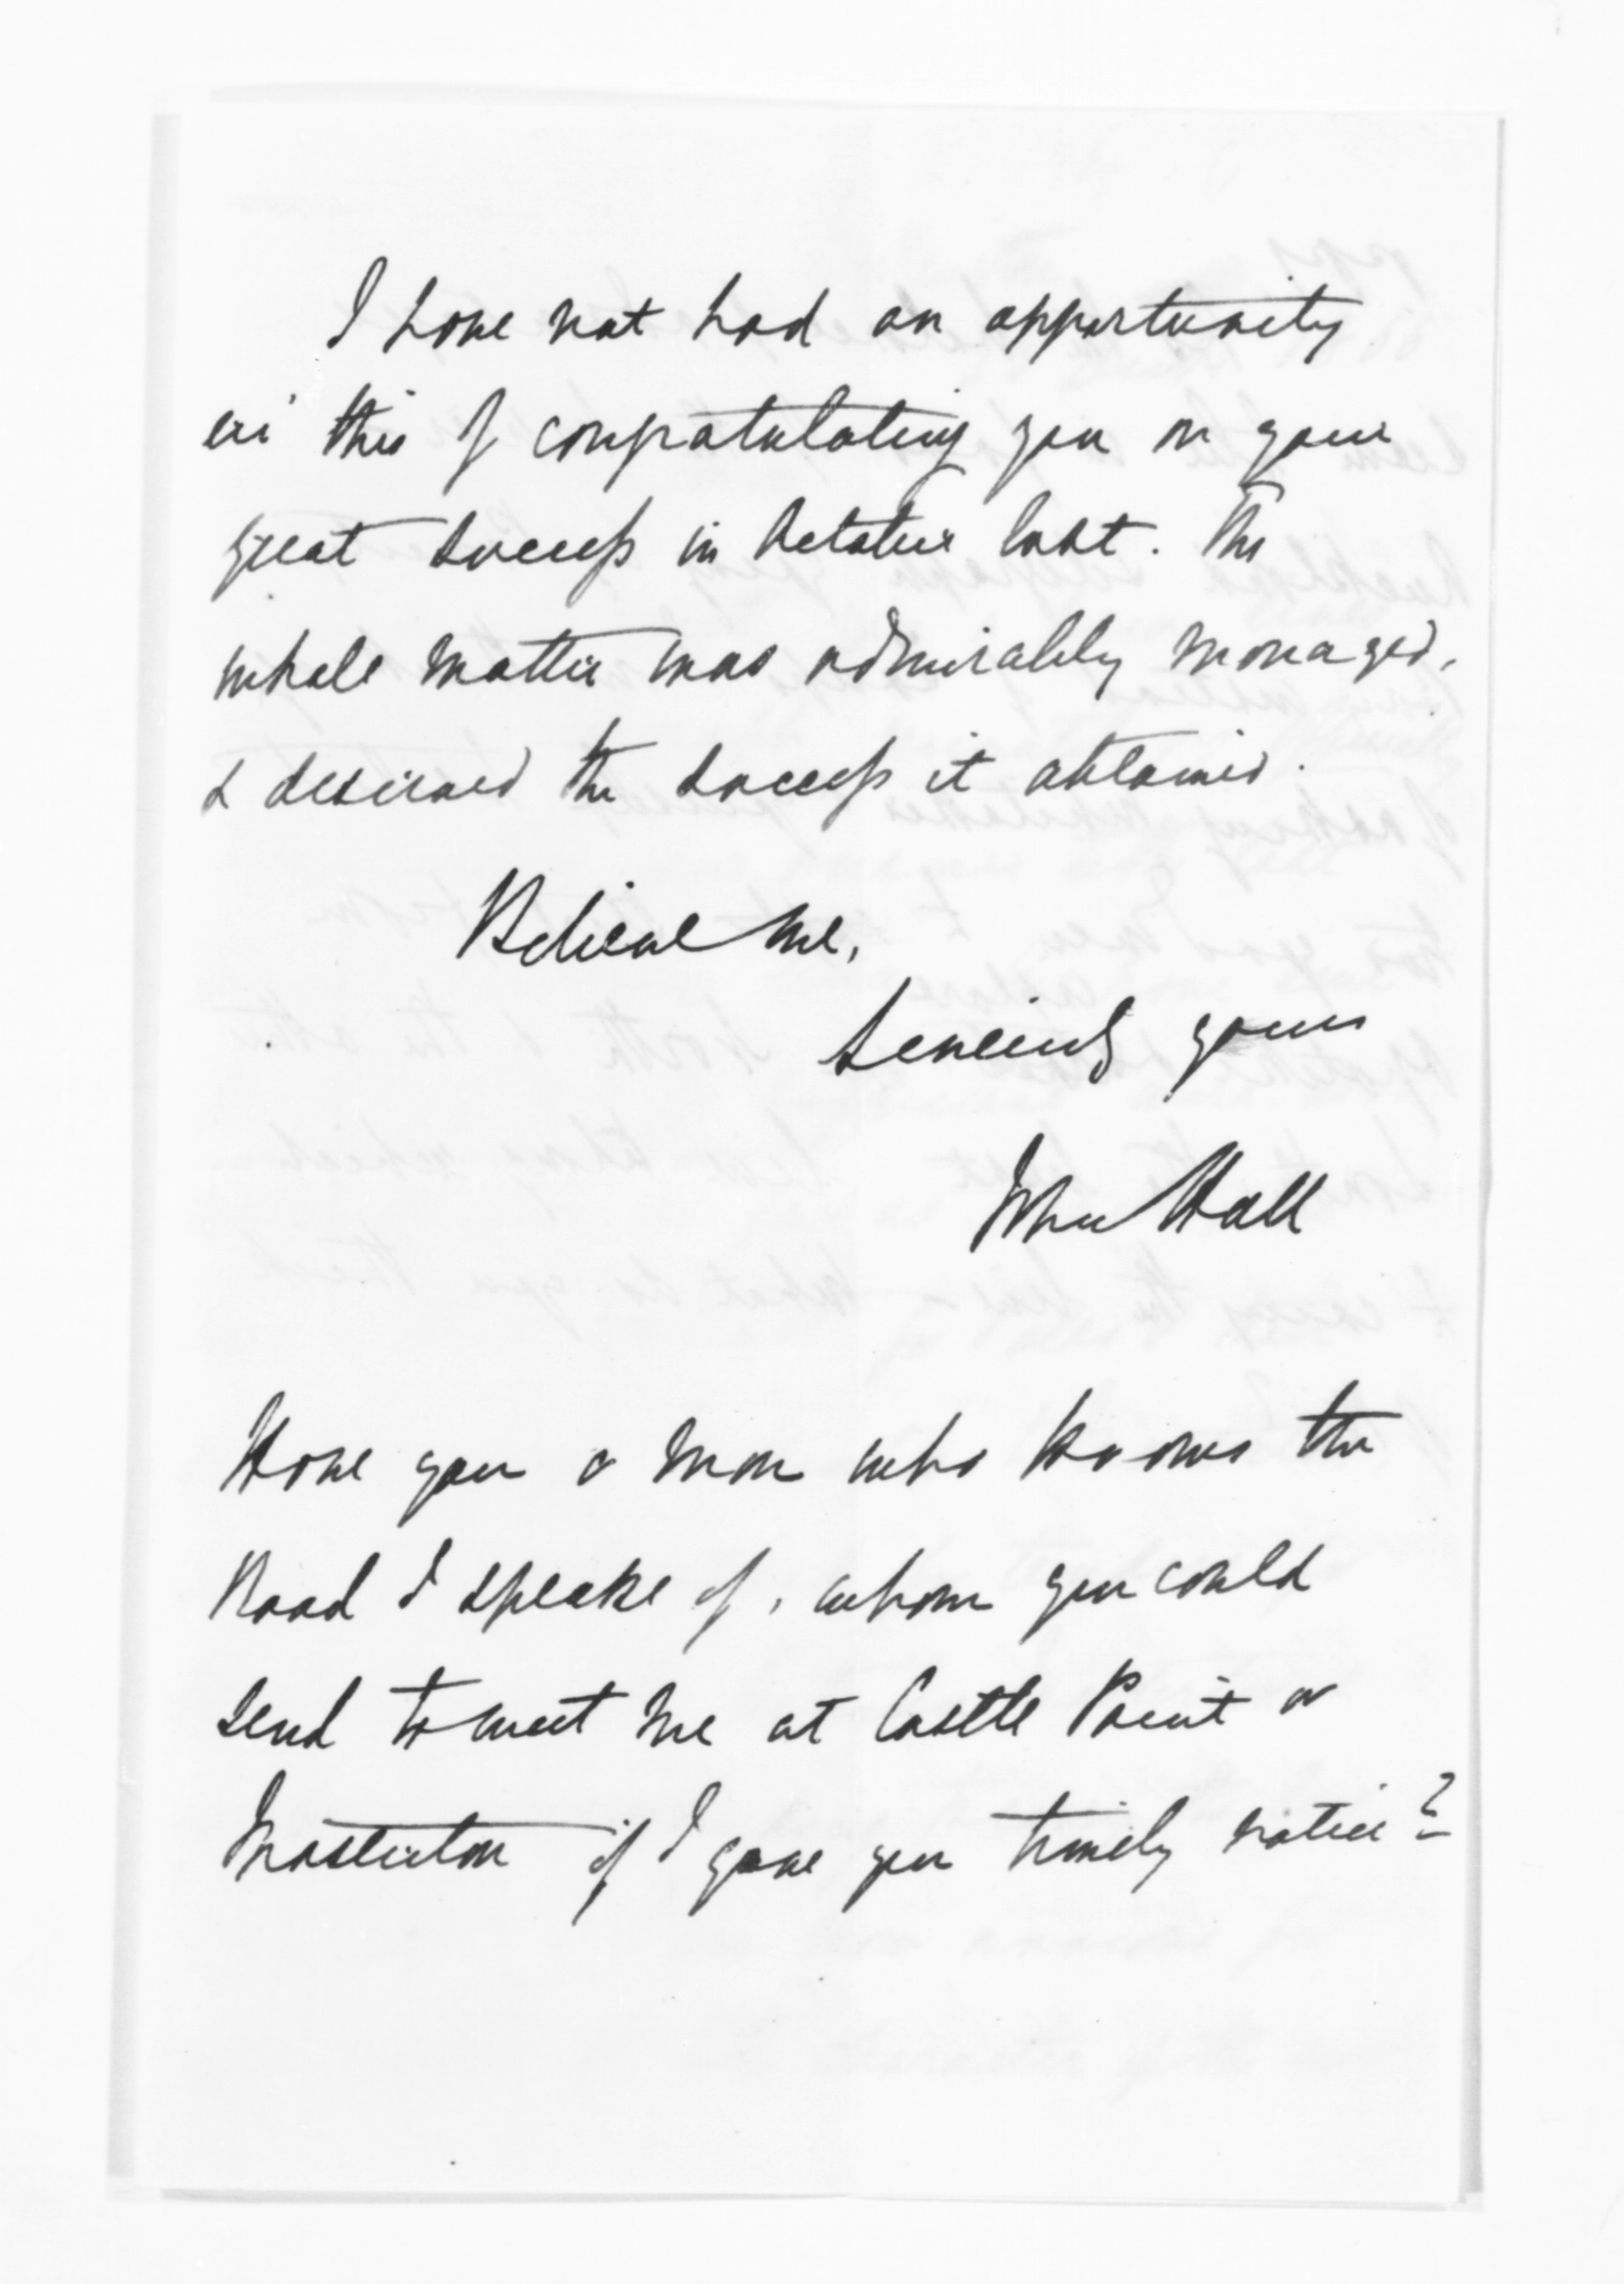 I have not had an opportunity
ere this of congratulating you on your
great success in October last. The
whole matter was admirably managed,
& deserved the success it obtained.
Believe me,
Sincerely yours
John Hall
Have you a man who knows the
Road I speak of, whom you could
send to meet me at Castle Point or
Masterton if I gave you timely notice?